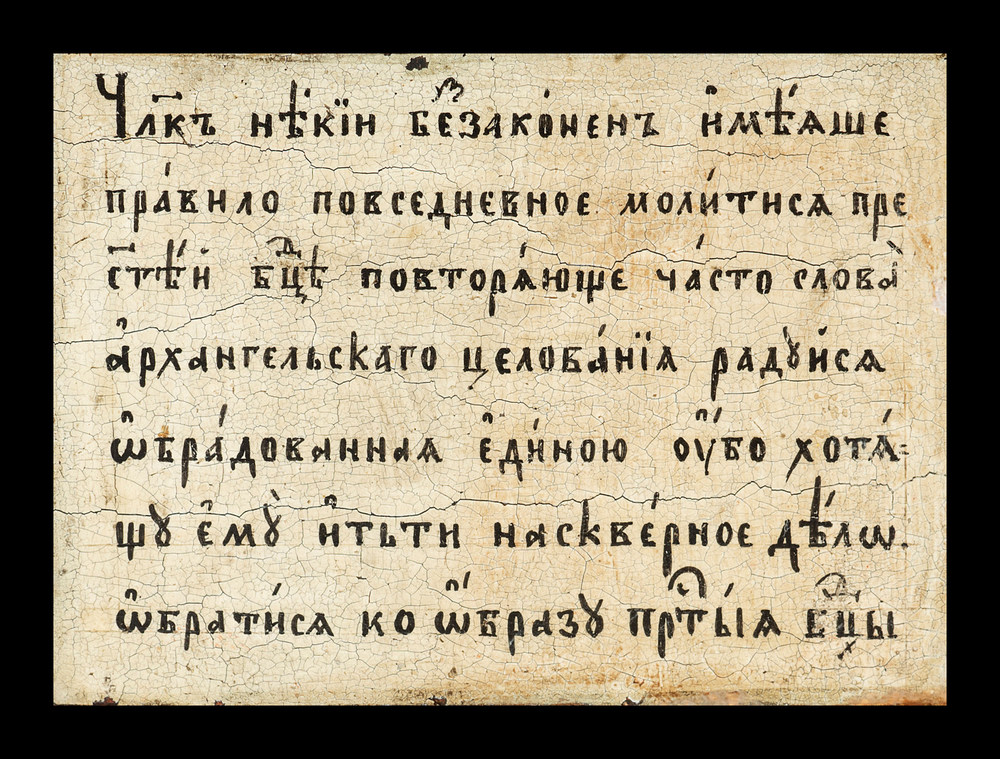 Чл҃къ нѣ́кїи беꙁако́ненъ и҆мѣ́ѧше
пра́вило повседневное моли́тисѧ пре
ст҃ѣ́й бц҃ѣ повторѧ́юще ча́сто слова̀
а҆рхангельскаго целова́нїѧ радꙋ́йсѧ
ѡ҆бра́дованнаѧ є҆ди́ною ѹ҆́бо хотѧ́=
щꙋ є҆мꙋ̀ и҆тьти наскве́рное дѣ́лѡ.
ѡ҆брати́сѧ ко ѡ҆́бразꙋ прⷭ҇ты́ѧ бцⷣы